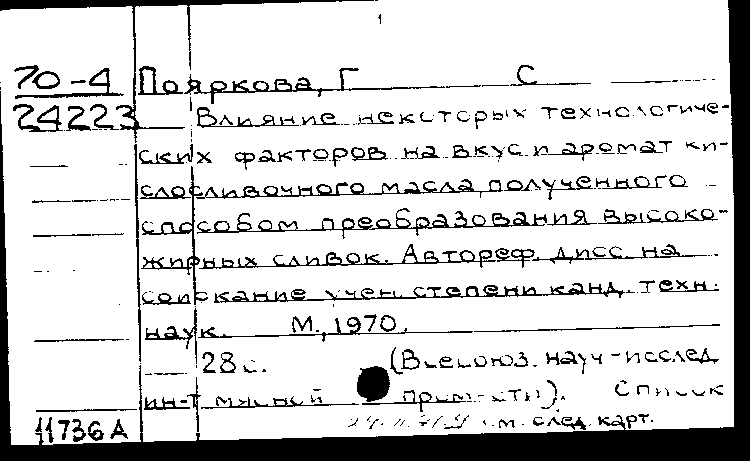 1
70-4 Пояркова, Г С
24223 Влияние некоторых технологиче-
ских факторов на вкус и аромат ки-
слосливочного масла, полученного
способом преобразования высоко-
жирных сливок. Автореф. дисс. на
соискание учен. степени канд. техн.
наук. М., 1970.
28 с. (Всесоюз. науч-исслед
ин-т мясной пром-сти). Список
11736А см. след. карт.